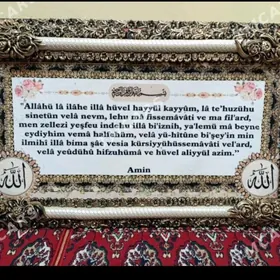 بسم الله الرحمن الرحيم
"Allâhü lâ ilâhe illâ hüvel hayyül kayyûm, lâ te'huzühu
sinetün velâ nevm, lehu mâ fissemâvâti ve ma fil'ard,
men zellezi yeşfeu indehu illâ bi'iznih, ya'lemü mâ beyne
eydiyhim vemâ halfehüm, velâ yü-hîtûne bi'şey'in min
ilmihî illâ bima şâe vesia kürsiyyühüssemâvâti vel'ard,
velâ yeûdühû hıfzuhümâ ve hüvel aliyyül azim."
Amin
الله
الله